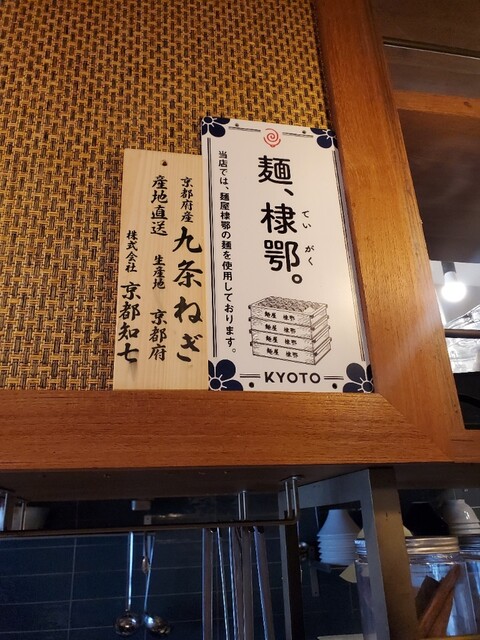 麺、棣鄂。
てい がく
当店では、麺屋棣鄂の麺を使用しております。
麺屋 棣鄂
麺屋 棣鄂
麺屋 棣鄂
麺屋 棣鄂
KYOTO
京都府産 九条ねぎ
産地直送 生産地 京都府
株式会社 京都知七